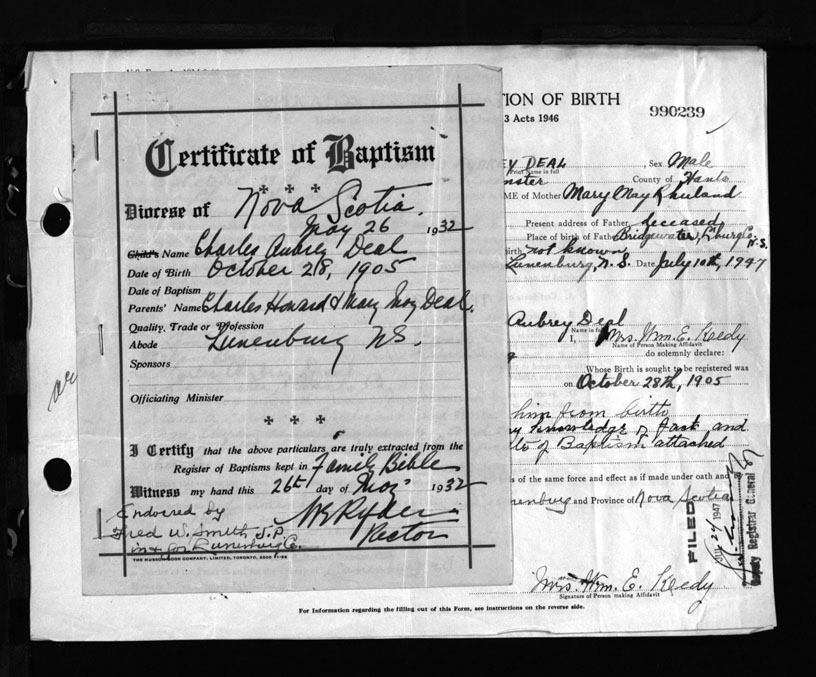 Certificate of Baptism
Diocese of Nova Scotia.
May 26 1932
Child's Name Charles Aubrey Deal
Date of Birth October 28, 1905
Date of Baptism
Parents' Name Charles Howard & Mary May Deal.
Quality, Trade or Profession
Abode Lunenburg N.S.
Sponsors
Officiating Minister
I Certify that the above particulars are truly extracted from the
Register of Baptisms kept in Family Bible
Witness my hand this 26th day of May 1932
Endorsed by
Fred W. Smith J.P.
in & for Lunenburg Co.
Rector
THE MUSSON BOOK COMPANY, LIMITED, TORONTO,
TION OF BIRTH
990239
3 Acts 1946
EY DEAL , Sex Male
Print Name in full
nster County of Hants
ME of Mother Mary May
Present address of Father deceased
Place of birth of Father Bridgewater, L'burg Co. N.S.
birth not known
Lunenburg, N.S. Date July 10th, 1947
Aubrey Deal
Name in full
I, Mrs. Wm. E. Keedy
Name of Person Making Affidavit
do solemnly declare:
Whose Birth is sought to be registered was
on October 28th, 1905
him from birth
knowledge of fact and
of Baptism attached
s of the same force and effect as if made under oath and
nenburg and Province of Nova Scotia
FILED
JUL 24 1947
Deputy Registrar General
Mrs. Wm. E. Keedy
Signature of Person making Affidavit
For Information regarding the filling out of this Form, see instructions on the reverse side.